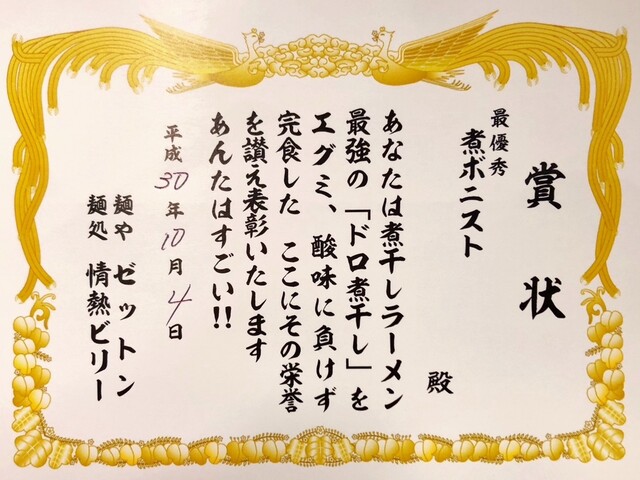 賞状
最優秀
煮ボニスト
殿
あなたは煮干しラーメン
最強の「ドロ煮干し」を
エグミ、酸味に負けず
完食した ここにその栄誉
を讃え表彰いたします
あんたはすごい!!
平成30年10月4日
麺や ゼットン
麺処 情熱ビリー